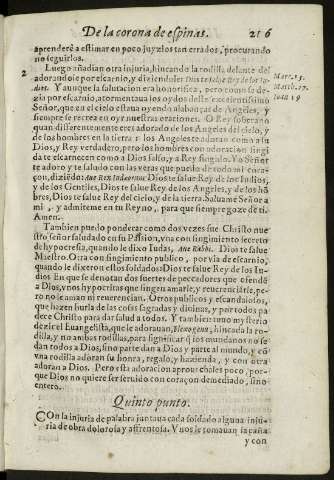 De la corona de espinas. 216
aprenderé a estimar en poco juyzios tan errados, procurando
no seguirlos.
2 Luego añadian otra injuria, hincando la rodilla delante del
adorandole por escarnio, y diziendole: Dios te salue Rey de los Iu-
dios. Y aunque la salutacion era honorifica, pero como se de-
zia por escarnio, atormentaua los oydos deste excelentissimo
Señor, que en el cielo estaua oyendo alabanças de Angeles, y
siempre se recrea en oyr nuestras oraciones. O Rey soberano
quan differentemente eres adorado de los Angeles del cielo, y
de los hombres en la tierra: los Angeles te adoran como a su
Dios, y Rey verdadero, pero los hombres con adoracion fingi
da te escarnecen como a Dios falso, y a Rey fingido. Yo Señor
te adoro y te saludo con las veras que puedo de todo mi cora-
çon, diziẽdo: Aue Rex Iudæorum Dios te salue Rey de los Iudios,
y de los Gentiles, Dios te salue Rey de los Angeles, y de los hõ
bres, Dios te salue Rey del cielo, y de la tierra. Saluame Señor a
mi, y admiteme en tu Reyno, para que siempre goze de ti.
Amen.
Marc. 15.
Matth. 27.
Ioan. 19
Tambien puedo ponderar como dos vezes fue Christo nue
stro señor saludado en su Passion, vna con fingimiento secreto
de hypocresia, quando le dixo Iudas, Aue Rabbi. Dios te salue
Maestro. Otra con fingimiento publico, por via de escarnio,
quando le dixeron estos soldados: Dios te salue Rey de los Iu-
dios En que se denotan dos suertes de pecadores que ofendẽ
a Dios, vnos hypocritas que fingen amarle, y reuerenciarle, pe-
ro no le aman ni reuerencian. Otros publicos y escandalosos,
que hazen burla de las cosas sagradas y diuinas, y por todos pa
dece Christo para dar salud a todos. Y tambien tiene mysterio
dezir el Euangelista, que le adorauan, Flexo genu, hincada la ro-
dilla, y no ambas rodillas, para significar q̃ los mundanos no se
dan todos a Dios, sino parte dan a Dios y parte al mundo, y cõ
vna rodilla adoran su honra, regalo, y hazienda, y con otra
adoran a Dios. Pero esta adoracion aprouechales poco, por-
que Dios no quiere ser seruido con coraçon demediado, sino
entero.
Quinto punto.
COn la injuria de palabra juntaua cada soldado alguna inju-
ria de obra dolorosa y affrentosa. Vnos le tomauan la caña
y con